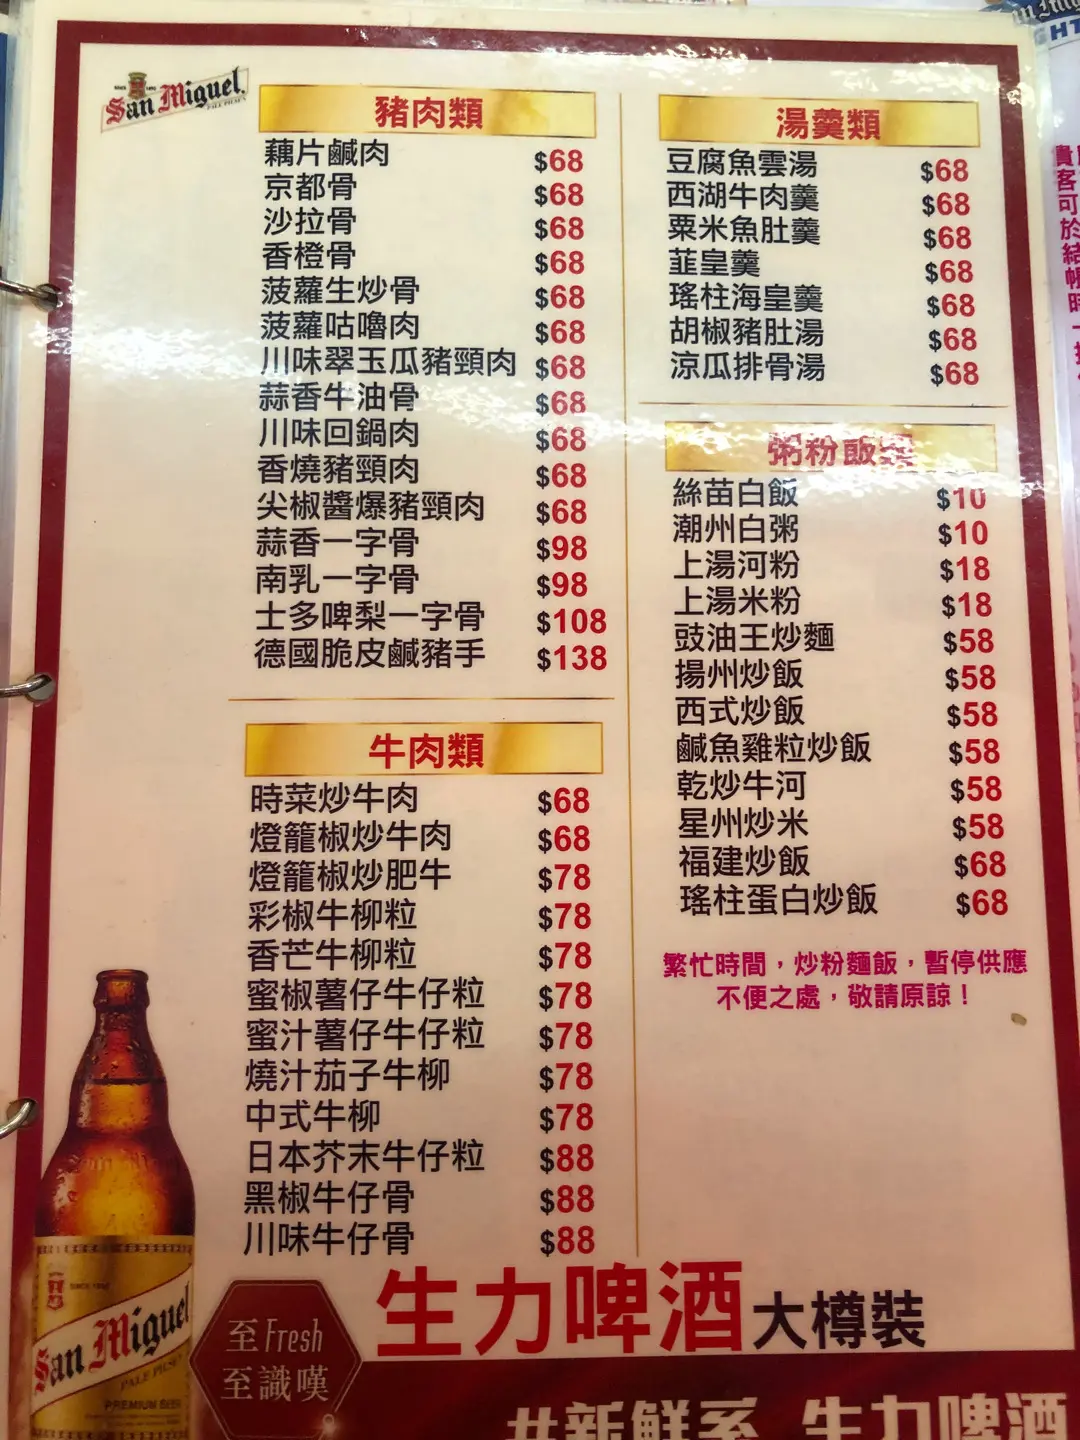 San Miguel
豬肉類
藕片鹹肉 $68
京都骨 $68
沙拉骨 $68
香橙骨 $68
菠蘿生炒骨 $68
菠蘿咕嚕肉 $68
川味翠玉瓜豬頸肉 $68
蒜香牛油骨 $68
川味回鍋肉 $68
香燒豬頸肉 $68
尖椒醬爆豬頸肉 $68
蒜香一字骨 $98
南乳一字骨 $98
士多啤梨一字骨 $108
德國脆皮鹹豬手 $138
牛肉類
時菜炒牛肉 $68
燈籠椒炒牛肉 $68
燈籠椒炒肥牛 $78
彩椒牛柳粒 $78
香芒牛柳粒 $78
蜜椒薯仔牛仔粒 $78
蜜汁薯仔牛仔粒 $78
燒汁茄子牛柳 $78
中式牛柳 $78
日本芥末牛仔粒 $88
黑椒牛仔骨 $88
川味牛仔骨 $88
湯羹類
豆腐魚雲湯 $68
西湖牛肉羹 $68
粟米魚肚羹 $68
韮皇羹 $68
瑤柱海皇羹 $68
胡椒豬肚湯 $68
涼瓜排骨湯 $68
粥粉飯類
絲苗白飯 $10
潮州白粥 $10
上湯河粉 $18
上湯米粉 $18
豉油王炒麵 $58
揚州炒飯 $58
西式炒飯 $58
鹹魚雞粒炒飯 $58
乾炒牛河 $58
星州炒米 $58
福建炒飯 $68
瑤柱蛋白炒飯 $68
繁忙時間，炒粉麵飯，暫停供應
不便之處，敬請原諒！
貴客可於結帳時
San Miguel
PALE PILSEN
PREMIUM BEER
至Fresh
至識嘆
生力啤酒大樽裝
#新鮮系 生力啤酒